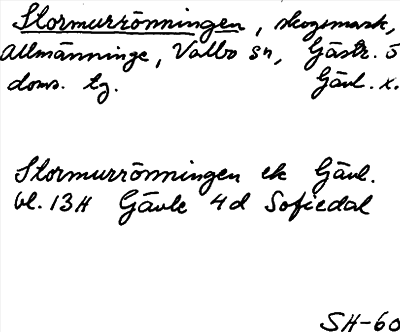 Stormurrönningen, skogsmark,
Allmänninge, Valbo sn, Gästr. ö
doms. tg. Gävl. x.
Stormurrönningen ek Gävl.
bl. 13H Gävle 4d Sofiedal
SH-60